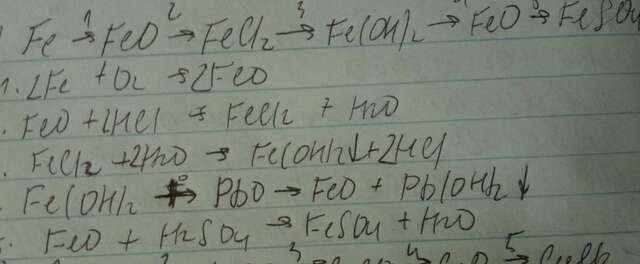 Fe →¹ FeO →² FeCl2 →³ Fe(OH)2 → FeO → FeSO4
1. 2Fe + O2 → 2FeO
. FeO + 2HCl → FeCl2 + H2O
. FeCl2 + 2H2O → Fe(OH)2↓ + 2HCl
. Fe(OH)2 → PbO → FeO + Pb(OH)2↓
. FeO + H2SO4 → FeSO4 + H2O